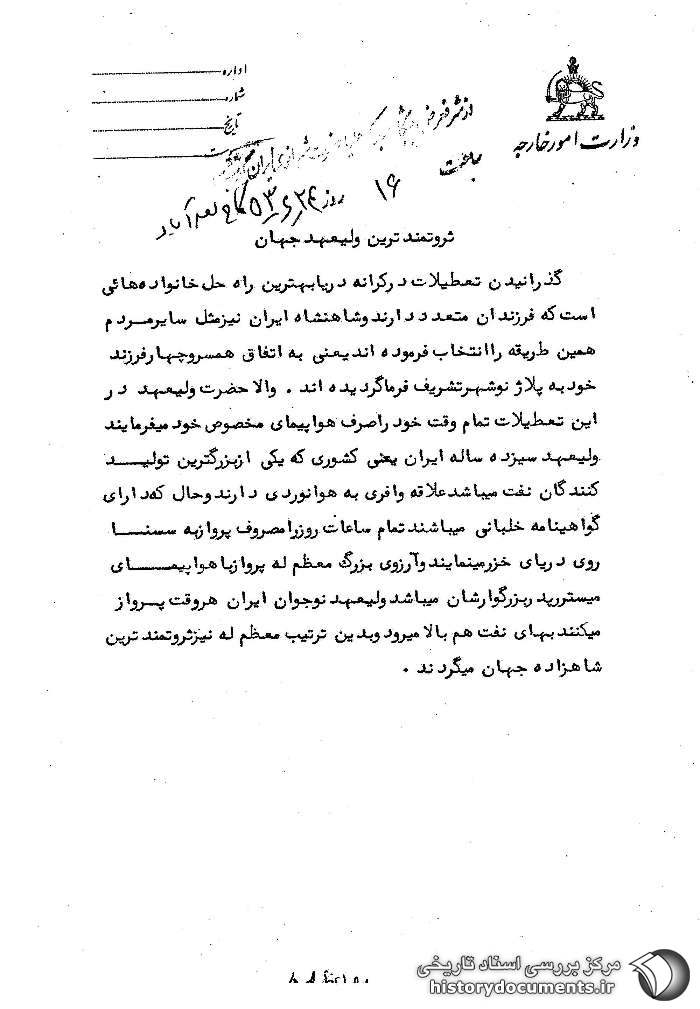 وزارت امور خارجه
اداره
شماره
تاریخ
از نظر
ساعت ۱۶ روز ۵۳/۶/۲۴ کاخ سعدآباد
ثروتمند ترین ولیعهد جهان
گذرانیدن تعطیلات درکرانه دریابهترین راه حل خانواده‌هائی
است که فرزندان متعدد دارند وشاهنشاه ایران نیزمثل سایرمردم
همین طریقه راانتخاب فرموده اندیعنی به اتفاق همسروچهارفرزند
خودبه پلاژ نوشهرتشریف فرماگردیده اند . والا حضرت ولیعهد در
این تعطیلات تمام وقت خود راصرف هواپیمای مخصوص خود میفرمایند
ولیعهد سیزده ساله ایران یعنی کشوری که یکی ازبزرگترین تولید
کنندگان نفت میباشدعلاقه وافری به هوانوردی دارند وحال که دارای
گواهینامه خلبانی میباشند تمام ساعات روزرامصروف پروازبه سسنا
روی دریای خزرمینمایند وآرزوی بزرگ معظم له پروازباهواپیمای
میسترپدربزرگوارشان میباشد ولیعهد نوجوان ایران هروقت پرواز
میکنند بهای نفت هم بالا میرود وبدین ترتیب معظم له نیزثروتمند ترین
شاهزاده جهان میگردند .
مرکز بررسی اسناد تاریخی
historydocuments.ir